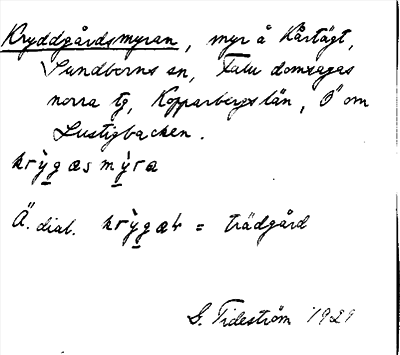 Kryddgårdsmyran, myr å Kårtägt,
Sundborns sn, Falu domsagas
norra tg, Kopparbergs län, Ö om
Lustigbacken.
krỳgæsmỳra
Ä. dial. krỳgæꞅ = trädgård
G. Tideström 1929